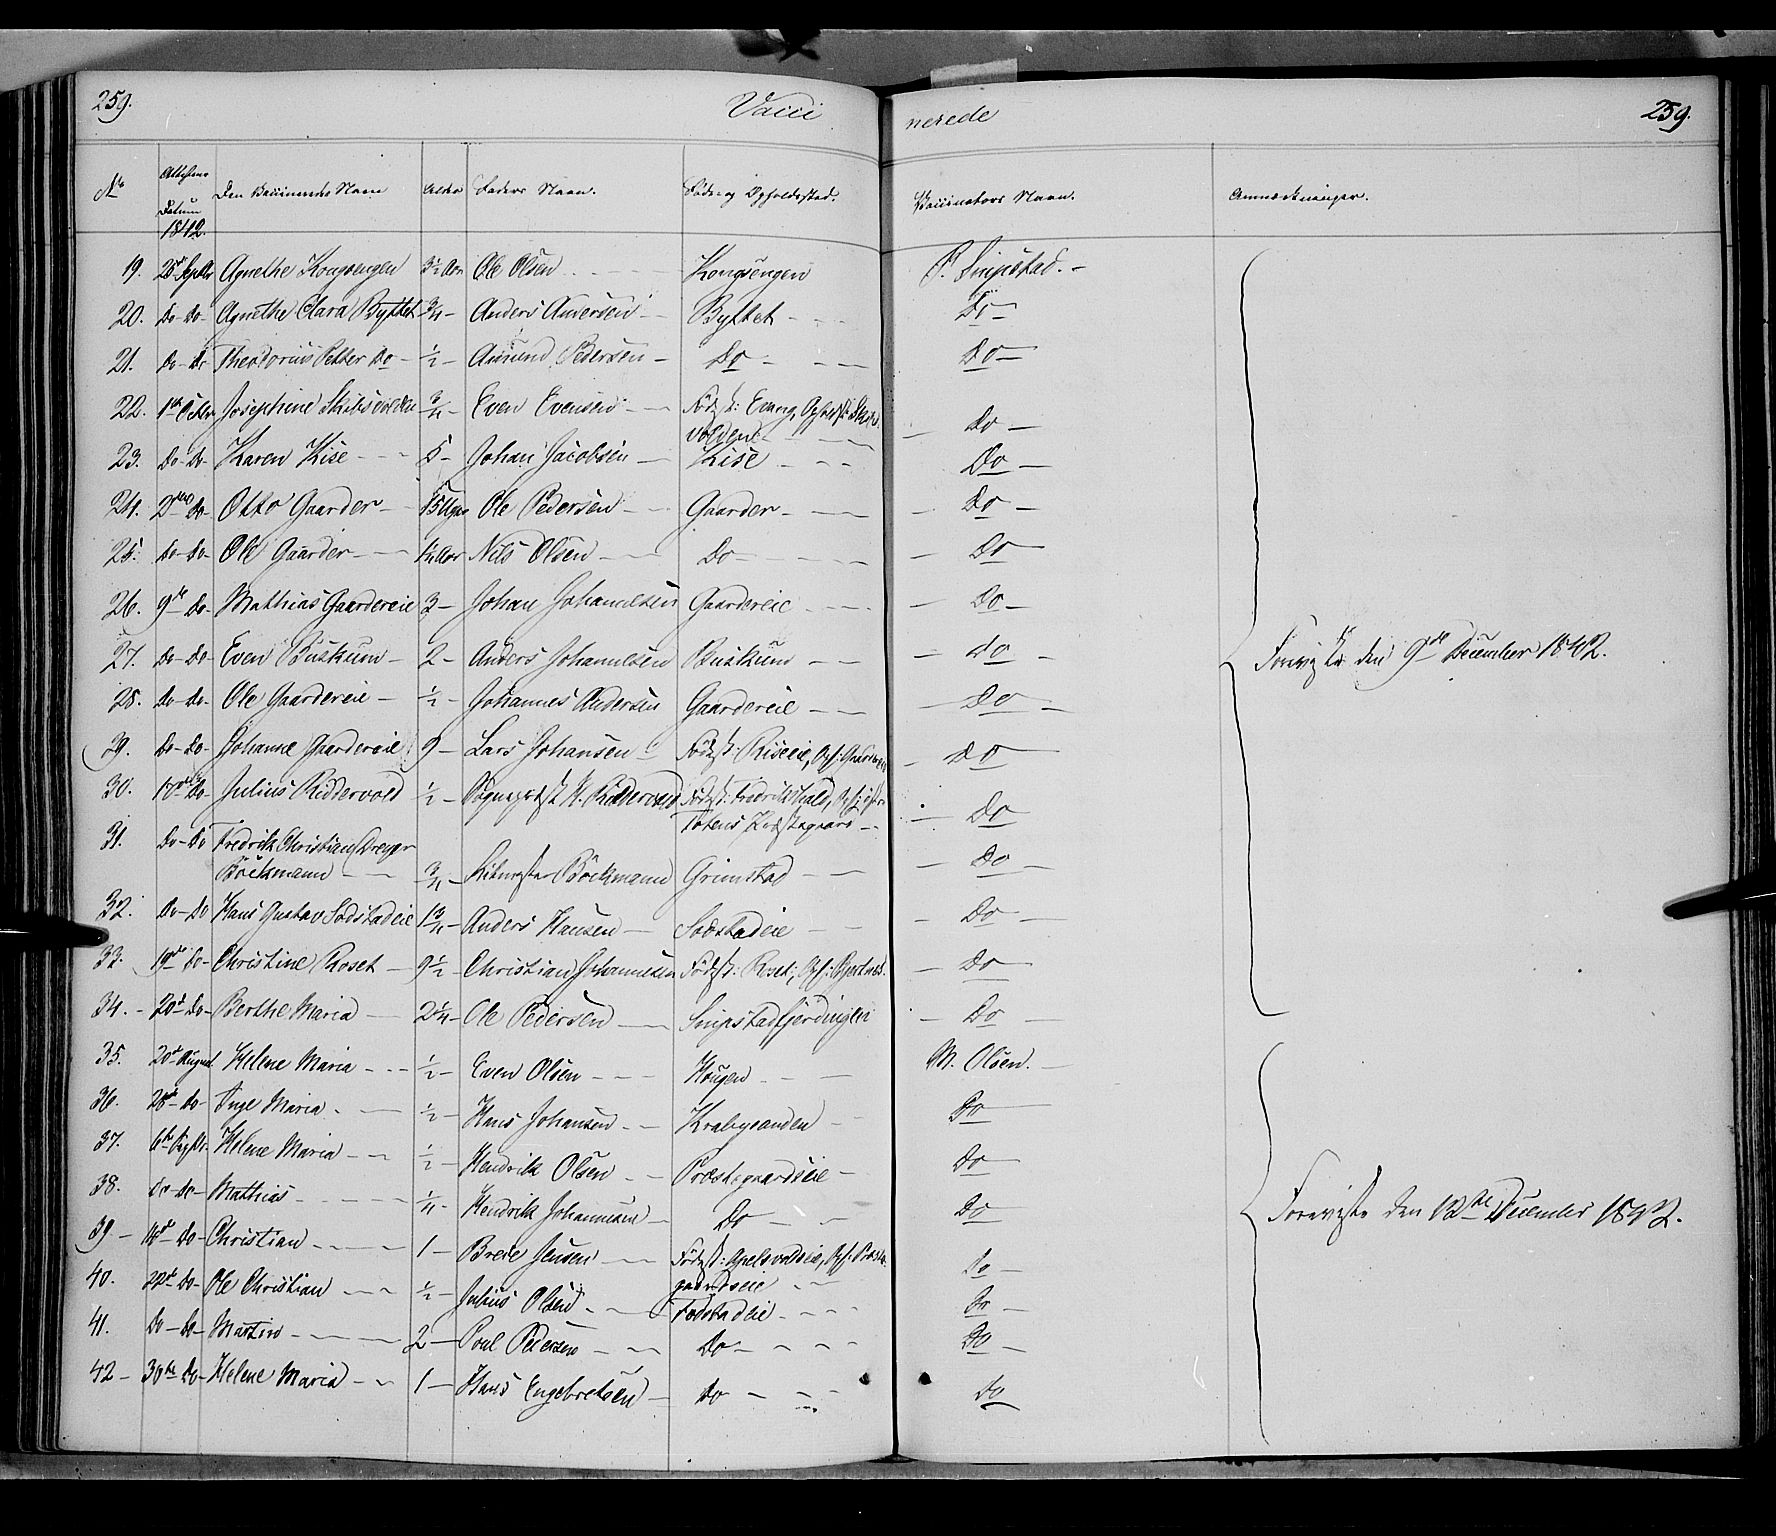 259. Vacci nerede 259.
No Attestens Datum 1842. Den Vaccineredes Navn Alder Faders Navn. Føde- og Opholdssted. Vaccinators Navn. Anmærkninger.
19. 25d Septbr Agnethe Kongsengen 3½ Aar Ole Olsen Kongsengen P. Snipstad.
20. Do Do Agnethe Clara Byttet ¾ Anders Andersen Byttet Do
21. Do Do Theodorius Petter Do ½ Amund Pedersen Do Do
22. 1ste Octbr Josephine Skibsvolden ¾ Even Evensen Fødest: Evang, Opholdst: Skibs-
volden Do
23. Do Do Karen Kise 5 Johan Jacobsen Kise Do
24. 2den Do Otto Gaarder 15 Uger Ole Pedersen Gaarder Do
25. Do Do Ole Gaarder ¼ Aar Nils Olsen Do Do
26. 9de Do Mathias Gaardereie 3 Johan Johannesen Gaardereie Do
27. Do Do Even Buskum 2 Anders Johannesen Buskum do Foreviste den 9de December 1842.
28. Do Do Ole Gaardereie ½ Johannes Andersen Gaardereie Do
29. Do Do Johanne Gaardereie 9 Lars Johansen Fødest: Riseeie, Oph: Gaardereie Do
30. 17de Do Julius Riddervold ½ Sognepræst H. Riddervold Fødest: Fredrikshald, Oph:
Totens Præstegaard Do
31. Do Do Fredrik Christian Dreyer
Böckmann ¾ Böckmann Grimstad Do
32. Do Do Hans Gustav Sodstadeie 1¾ Anders Hansen Sodstadeie Do
33. 19d Do Christine Roset 9½ Christian Johannesen Fødest: Roset, Oph: Gjertnes. Do
34. 20d Do Berthe Maria 2¼ Ole Pedersen Snipstadfjerdingen Do
35. 20d August Helene Maria ½ Even Olsen Hougen M. Olsen.
36. 28d Do Inge Maria ½ Hans Johansen Krabyeanden Do
37. 6te Septbr Helene Maria ½ Hendrik Olsen Præstegaardseie Do
38. Do Do Mathias ¼ Hendrik Johannesen Do Do Foreviste den 12te December 1842.
39 14d Do Christian 1 Brede Jensen Fødest: Apelsvoldeie, Oph: Præste-
gaardseie Do
40. 22d Do Ole Christian ½ Julius Olsen Fodstadeie Do
41. Do Do Martin 2 Poul Pedersen Do Do
42 30te Do Helene Maria 1 Hans Engebretsen Do Do